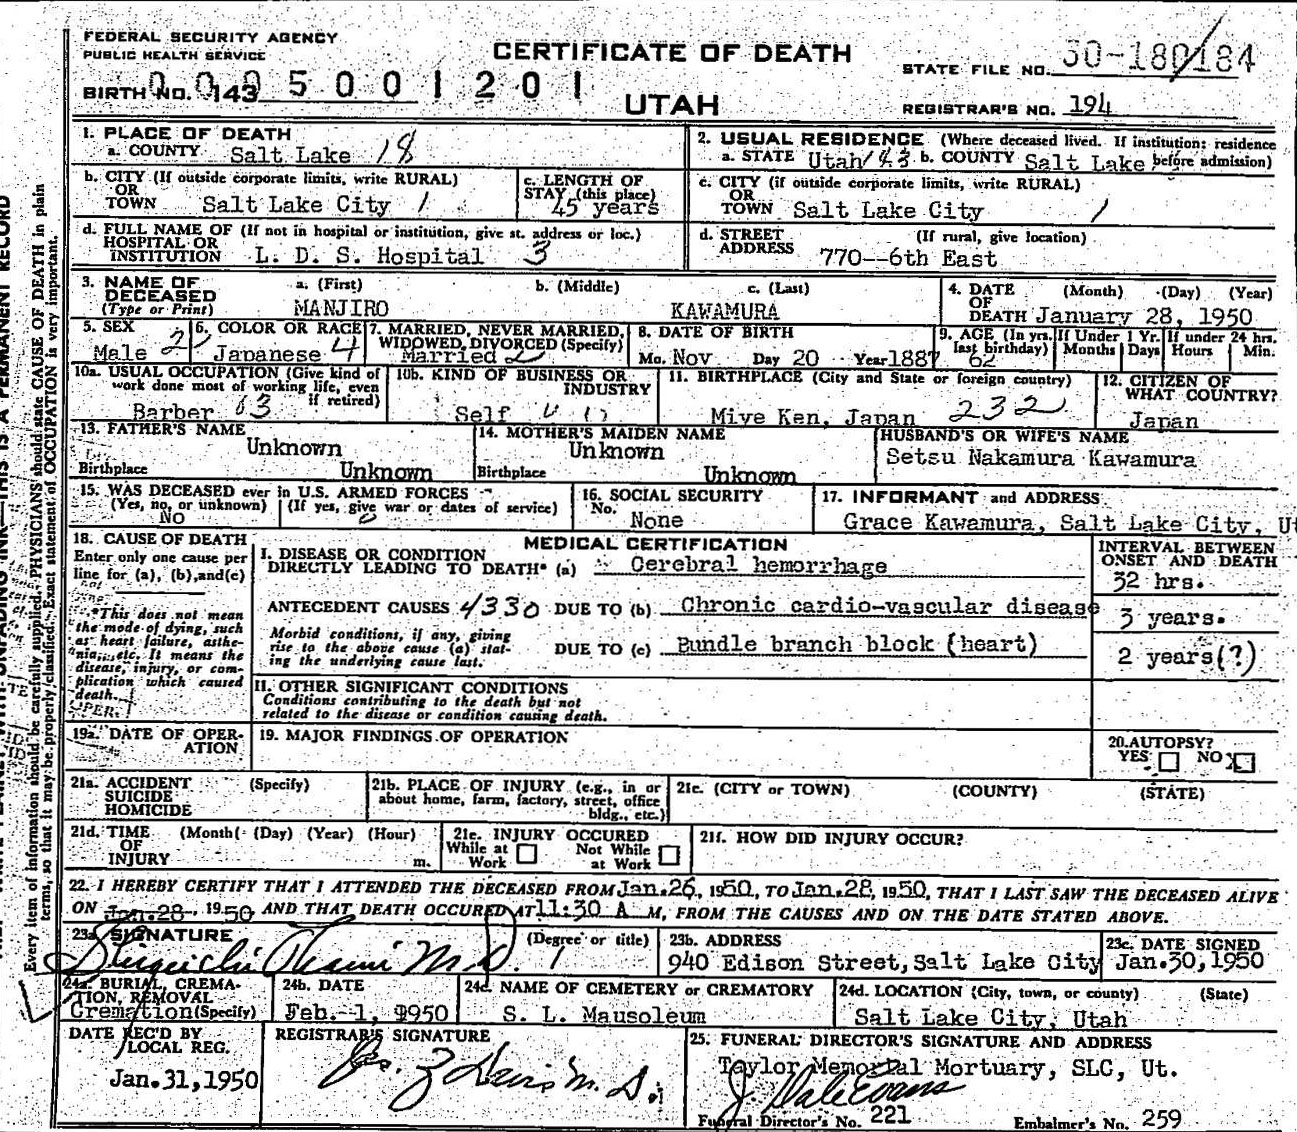 FEDERAL SECURITY AGENCY
PUBLIC HEALTH SERVICE
CERTIFICATE OF DEATH
STATE FILE NO. 50-180/184
BIRTH NO. 143 5001201
UTAH
REGISTRAR'S NO. 194
1. PLACE OF DEATH
a. COUNTY Salt Lake 18
2. USUAL RESIDENCE (Where deceased lived. If institution: residence before admission)
a. STATE Utah 143 b. COUNTY Salt Lake
b. CITY (If outside corporate limits, write RURAL)
OR
TOWN Salt Lake City 1
c. LENGTH OF
STAY (this place)
45 years
c. CITY (if outside corporate limits, write RURAL)
OR
TOWN Salt Lake City 1
d. FULL NAME OF (If not in hospital or institution, give st. address or loc.)
HOSPITAL OR
INSTITUTION L. D. S. Hospital 3
d. STREET (If rural, give location)
ADDRESS 770--6th East
3. NAME OF
DECEASED
(Type or Print)
a. (First) b. (Middle) c. (Last)
MANJIRO KAWAMURA
4. DATE (Month) (Day) (Year)
OF
DEATH January 28, 1950
5. SEX
Male 2
6. COLOR OR RACE
Japanese 4
7. MARRIED, NEVER MARRIED,
WIDOWED, DIVORCED (Specify)
Married 2
8. DATE OF BIRTH
Mo. Nov Day 20 Year 1887
9. AGE (In yrs. last birthday) If Under 1 Yr. If under 24 hrs.
62 Months Days Hours Min.
10a. USUAL OCCUPATION (Give kind of
work done most of working life, even
if retired)
Barber 63
10b. KIND OF BUSINESS OR
INDUSTRY
Self
11. BIRTHPLACE (City and State or foreign country)
Miye Ken, Japan 232
12. CITIZEN OF
WHAT COUNTRY?
Japan
13. FATHER'S NAME
Unknown
Birthplace Unknown
14. MOTHER'S MAIDEN NAME
Unknown
Birthplace Unknown
HUSBAND'S OR WIFE'S NAME
Setsu Nakamura Kawamura
15. WAS DECEASED ever in U.S. ARMED FORCES
(Yes, no, or unknown) (If yes, give war or dates of service)
NO 0
16. SOCIAL SECURITY
No.
None
17. INFORMANT and ADDRESS
Grace Kawamura, Salt Lake City, Ut
18. CAUSE OF DEATH
Enter only one cause per
line for (a), (b), and (c)
*This does not mean
the mode of dying, such
as heart failure, asthe-
nia, etc. It means the
disease, injury, or com-
plication which caused
death.
MEDICAL CERTIFICATION
I. DISEASE OR CONDITION
DIRECTLY LEADING TO DEATH* (a) Cerebral hemorrhage
ANTECEDENT CAUSES 4330 DUE TO (b) Chronic cardio-vascular disease
Morbid conditions, if any, giving
rise to the above cause (a) stat-
ing the underlying cause last.
DUE TO (c) Bundle branch block (heart)
INTERVAL BETWEEN
ONSET AND DEATH
32 hrs.
3 years.
2 years(?)
II. OTHER SIGNIFICANT CONDITIONS
Conditions contributing to the death but not
related to the disease or condition causing death.
19a. DATE OF OPER-
ATION
19. MAJOR FINDINGS OF OPERATION
20. AUTOPSY?
YES NO X
21a. ACCIDENT (Specify)
SUICIDE
HOMICIDE
21b. PLACE OF INJURY (e.g., in or
about home, farm, factory, street, office
bldg., etc.)
21c. (CITY or TOWN) (COUNTY) (STATE)
21d. TIME (Month) (Day) (Year) (Hour)
OF
INJURY m.
21e. INJURY OCCURED
While at Work Not While at Work
21f. HOW DID INJURY OCCUR?
22. I HEREBY CERTIFY THAT I ATTENDED THE DECEASED FROM Jan.26, 1950, TO Jan.28, 1950, THAT I LAST SAW THE DECEASED ALIVE
ON Jan.28, 1950 AND THAT DEATH OCCURED AT 11:30 A M, FROM THE CAUSES AND ON THE DATE STATED ABOVE.
23a. SIGNATURE (Degree or title)
M.D. 1
23b. ADDRESS
940 Edison Street, Salt Lake City
23c. DATE SIGNED
Jan.30, 1950
24a. BURIAL, CREMA-
TION, REMOVAL
Cremation (Specify)
24b. DATE
Feb. 1, 1950
24c NAME OF CEMETERY or CREMATORY
S. L. Mausoleum
24d. LOCATION (City, town, or county) (State)
Salt Lake City, Utah
DATE REC'D BY
LOCAL REG.
Jan.31, 1950
REGISTRAR'S SIGNATURE
M. D.
25. FUNERAL DIRECTOR'S SIGNATURE AND ADDRESS
Taylor Memorial Mortuary, SLC, Ut.
J Dale Evans
Funeral Director's No. 221 Embalmer's No. 259
Every item of information should be carefully supplied. PHYSICIANS should state CAUSE OF DEATH in plain
terms, so that it may be properly classified. Exact statement of OCCUPATION is very important.
INK—THIS IS A PERMANENT RECORD